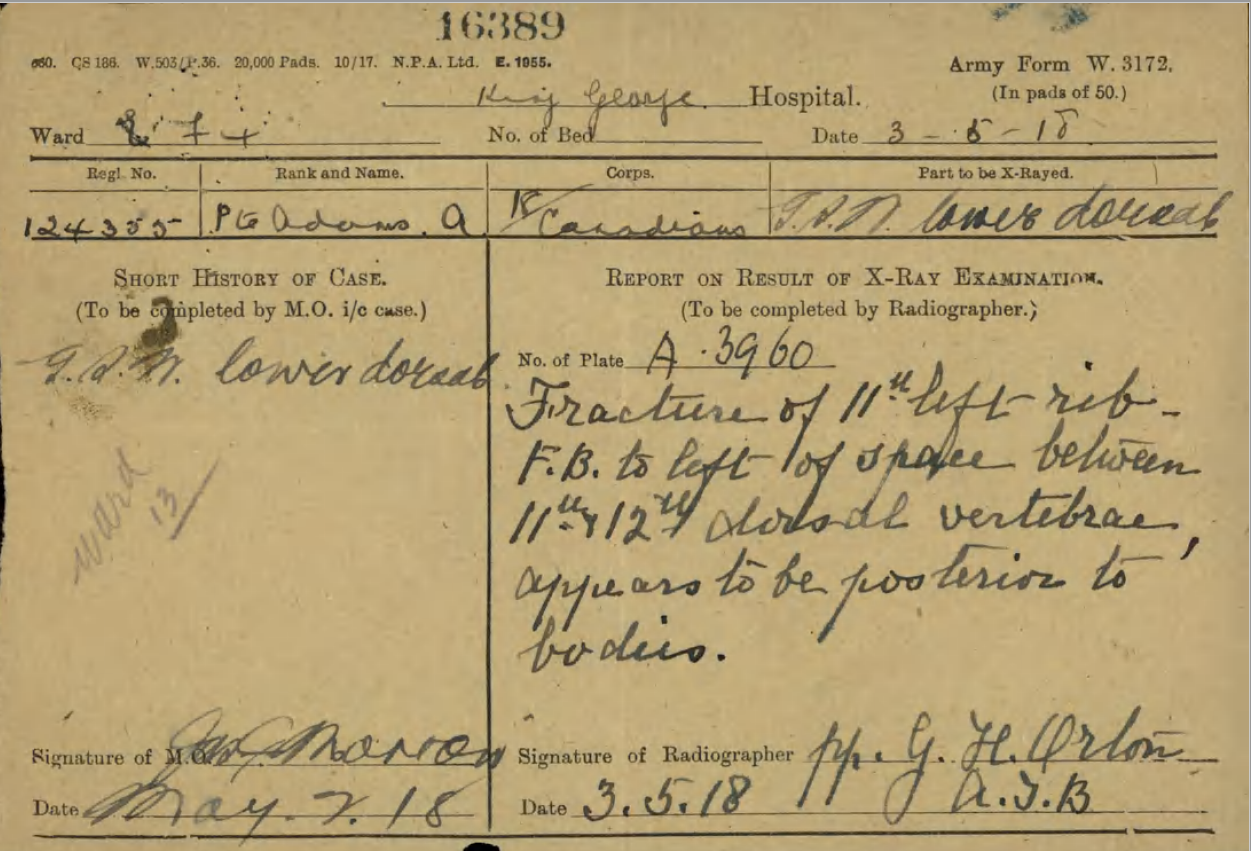 16389
660. QS 186. W.503/P.36. 20,000 Pads. 10/17. N.P.A. Ltd. E. 1955.
Army Form W. 3172.
(In pads of 50.)
King George Hospital.
Ward
No. of Bed
Date 3-5-18
Regl. No. Rank and Name. Corps. Part to be X-Rayed.
124355 Pte Adams. A Canadians G.S.W. lower dorsal
SHORT HISTORY OF CASE.
(To be completed by M.O. i/c case.)
G.S.W. lower dorsal
Ward
13
Signature of M.O.
Date May. 2. 18
REPORT ON RESULT OF X-RAY EXAMINATION.
(To be completed by Radiographer.)
No. of Plate A.3960
Fracture of 11th left rib -
F.B. to left of space between
11th & 12th dorsal vertebrae,
appears to be posterior to
bodies.
Signature of Radiographer pp. G. H. Orton
Date 3.5.18 A.J.B